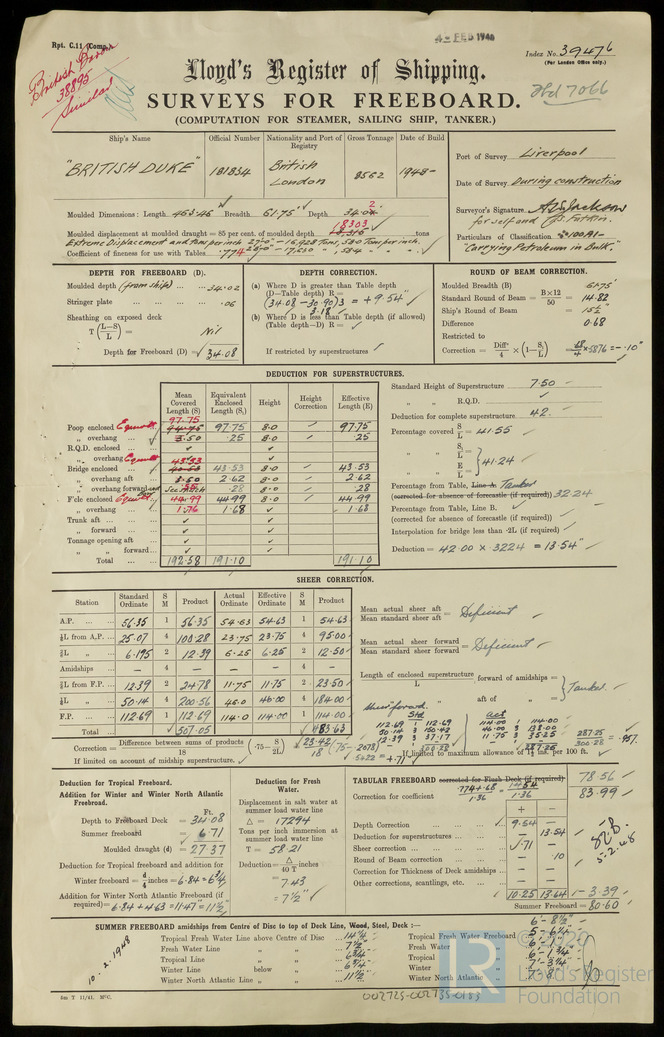 Rpt. C.11 (Comp.)
4 - FEB 1948
Index No. 39476
(For London Office only.)
British Baron
38895
Similar
Lloyd's Register of Shipping.
SURVEYS FOR FREEBOARD.
(COMPUTATION FOR STEAMER, SAILING SHIP, TANKER.)
Ship's Name Official Number Nationality and Port of Registry Gross Tonnage Date of Build
"BRITISH DUKE" 181834 British London 8562 1948
Port of Survey Liverpool
Date of Survey During construction
Surveyor's Signature
for self and
Particulars of Classification +100A1-
"Carrying Petroleum in Bulk."
Moulded Dimensions: Length 463.46 Breadth 61.75 Depth 34.02
Moulded displacement at moulded draught = 85 per cent. of moulded depth 18303
Extreme Displacement and Tons per inch 27'-0" - 16,928 Tons, 580 Tons per inch.
Coefficient of fineness for use with Tables .774
DEPTH FOR FREEBOARD (D).
Moulded depth (from ship) 34.02
Stringer plate .06
Sheathing on exposed deck
T (L-S/L) = Nil
Depth for Freeboard (D) = 34.08
DEPTH CORRECTION.
(a) Where D is greater than Table depth
(D-Table depth) R =
(34.08 - 30.90) 3 = +9.54"
3.18
(b) Where D is less than Table depth (if allowed)
(Table depth-D) R =
If restricted by superstructures
ROUND OF BEAM CORRECTION.
Moulded Breadth (B) 61.75
Standard Round of Beam = B×12/50 = 14.82
Ship's Round of Beam = 15½
Difference 0.68
Restricted to
Correction = Diff/4 × (1-S₁/L) = .68/4 × .5876 = -.10"
DEDUCTION FOR SUPERSTRUCTURES.
Mean Covered Length (S) Equivalent Enclosed Length (S₁) Height Height Correction Effective Length (E)
Poop enclosed 97.75 97.75 8.0 97.75
„ overhang 3.50 .25 8.0 .25
R.Q.D. enclosed
„ overhang
Bridge enclosed 43.53 43.53 8.0 43.53
„ overhang aft 3.50 2.62 8.0 2.62
„ overhang forward .28 8.0 .28
F'cle enclosed 44.99 44.99 8.0 44.99
„ overhang 1.76 1.68 1.68
Trunk aft
„ forward
Tonnage opening aft
„ „ forward
Total 192.58 191.10 191.10
Standard Height of Superstructure 7.50
„ „ R.Q.D.
Deduction for complete superstructure 42.
Percentage covered S/L = 41.55
„ „ S₁/L
„ „ E/L = 41.24
Percentage from Table, Line A. Tanker
(corrected for absence of forecastle (if required)) 32.24
Percentage from Table, Line B.
(corrected for absence of forecastle (if required))
Interpolation for bridge less than ·2L (if required)
Deduction = 42.00 × .3224 = 13.54"
SHEER CORRECTION.
Station Standard Ordinate S M Product Actual Ordinate Effective Ordinate S M Product
A.P. 56.35 1 56.35 54.63 54.63 1 54.63
⅙L from A.P. 25.07 4 100.28 23.75 23.75 4 95.00
⅓L „ 6.195 2 12.39 6.25 6.25 2 12.50
Amidships - 4 - - - 4 -
⅓L from F.P. 12.39 2 24.78 11.75 11.75 2 23.50
⅙L „ 50.14 4 200.56 46.0 46.00 4 184.00
F.P. 112.69 1 112.69 114.0 114.00 1 114.00
Total 507.05 483.63
Mean actual sheer aft / Mean standard sheer aft = Deficient
Mean actual sheer forward / Mean standard sheer forward = Deficient
Length of enclosed superstructure / L forward of amidships =
„ „ aft of „ = Tanker
Sheer forward.
Std Act
112.69 1 112.69 114.00 1 114.00
50.14 3 150.42 46.00 3 138.00
12.39 3 37.17 11.75 3 35.25
300.28 287.25
287.25/300.28 = .957
Correction = Difference between sums of products/18 (·75-S/2L) = 23.42/18 (.75-.2078)
If limited on account of midship superstructure. .5422 = +.71
If limited to maximum allowance of 1½ ins. per 100 ft.
Deduction for Tropical Freeboard.
Addition for Winter and Winter North Atlantic Freeboard.
Ft.
Depth to Freeboard Deck = 34.08
Summer freeboard = 6.71
Moulded draught (d) = 27.37
Deduction for Tropical freeboard and addition for
Winter freeboard = d/4 inches = 6.84 = 6¾
Addition for Winter North Atlantic Freeboard (if
required) = 6.84 + 4.63 = 11.47" = 11½"
Deduction for Fresh Water.
Displacement in salt water at summer load water line
Δ = 17294
Tons per inch immersion at summer load water line
T = 58.21
Deduction = Δ/40 T inches
= 7.43
= 7½"
TABULAR FREEBOARD corrected for Flush Deck (if required) 78.56
Correction for coefficient .774+.68/1.36 = 1.454/1.36 83.99
+ -
Depth Correction 9.54 -
Deduction for superstructures - 13.54
Sheer correction .71 -
Round of Beam correction - .10
Correction for Thickness of Deck amidships - -
Other corrections, scantlings, etc. - -
10.25 13.64 -3.39
Summer Freeboard = 80.60
5.2.48
SUMMER FREEBOARD amidships from Centre of Disc to top of Deck Line, Wood, Steel, Deck :— 6 - 8½"
Tropical Fresh Water Line above Centre of Disc 14¼"
Fresh Water Line „ „ 7½"
Tropical Line „ „ 6¾"
Winter Line below „ 6¾"
Winter North Atlantic Line „ „ 11½"
Tropical Fresh Water Freeboard 5 - 6¼"
Fresh Water „ 6 - 1"
Tropical „ 6 - 1¾"
Winter „ 7 - 3¼"
Winter North Atlantic „ 7 - 8"
10.2.1948
5m T 11/41.
002725-002735-0183
© 2020
LR
Lloyd's Register
Foundation